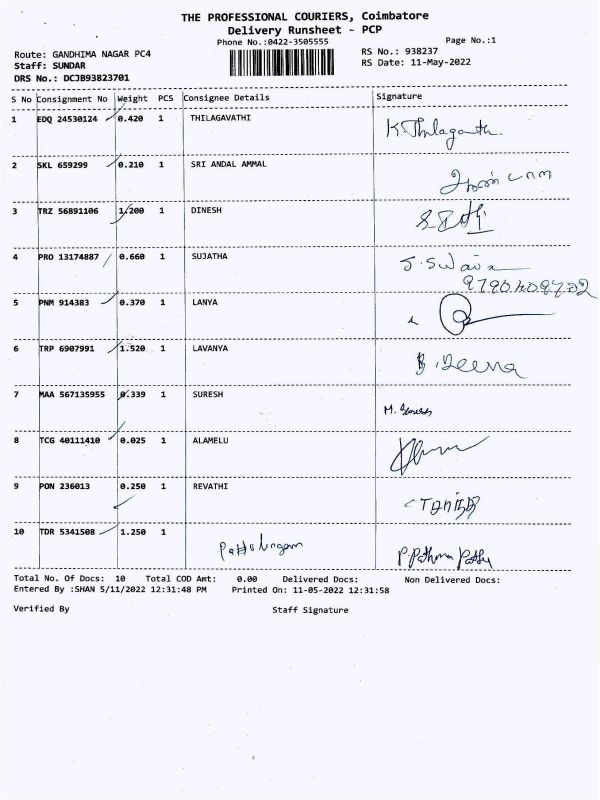 THE PROFESSIONAL COURIERS, Coimbatore
Delivery Runsheet - PCP
Phone No.:0422-3505555
Page No.:1
Route: GANDHIMA NAGAR PC4
RS No.: 938237
Staff: SUNDAR
RS Date: 11-May-2022
DRS No.: DCJB93823701
S No Consignment No Weight PCS Consignee Details Signature
1 EDQ 24530124 0.420 1 THILAGAVATHI K.Thilagavathi
2 SKL 659299 0.210 1 SRI ANDAL AMMAL
3 TRZ 56891106 1.200 1 DINESH
4 PRO 13174887 0.660 1 SUJATHA
5 PNM 914383 0.370 1 LANYA
6 TRP 6907991 1.520 1 LAVANYA B.Deena
7 MAA 567135955 0.339 1 SURESH
8 TCG 40111410 0.025 1 ALAMELU
9 PON 236013 0.250 1 REVATHI
10 TDR 5341508 1.250 1
Total No. Of Docs: 10 Total COD Amt: 0.00 Delivered Docs: Non Delivered Docs:
Entered By :SHAN 5/11/2022 12:31:48 PM Printed On: 11-05-2022 12:31:58
Verified By Staff Signature